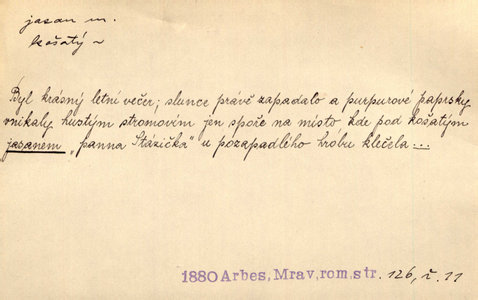 jasan m.
košatý ~
Byl krásný letní večer; slunce právě zapadalo a purpurové paprsky
vnikaly hustým stromovím jen spoře na místo kde pod košatým
jasanem „panna Stázička" u pozapadlého hrobu klečela...
1880 Arbes, Mrav, rom, str. 126, č. 11